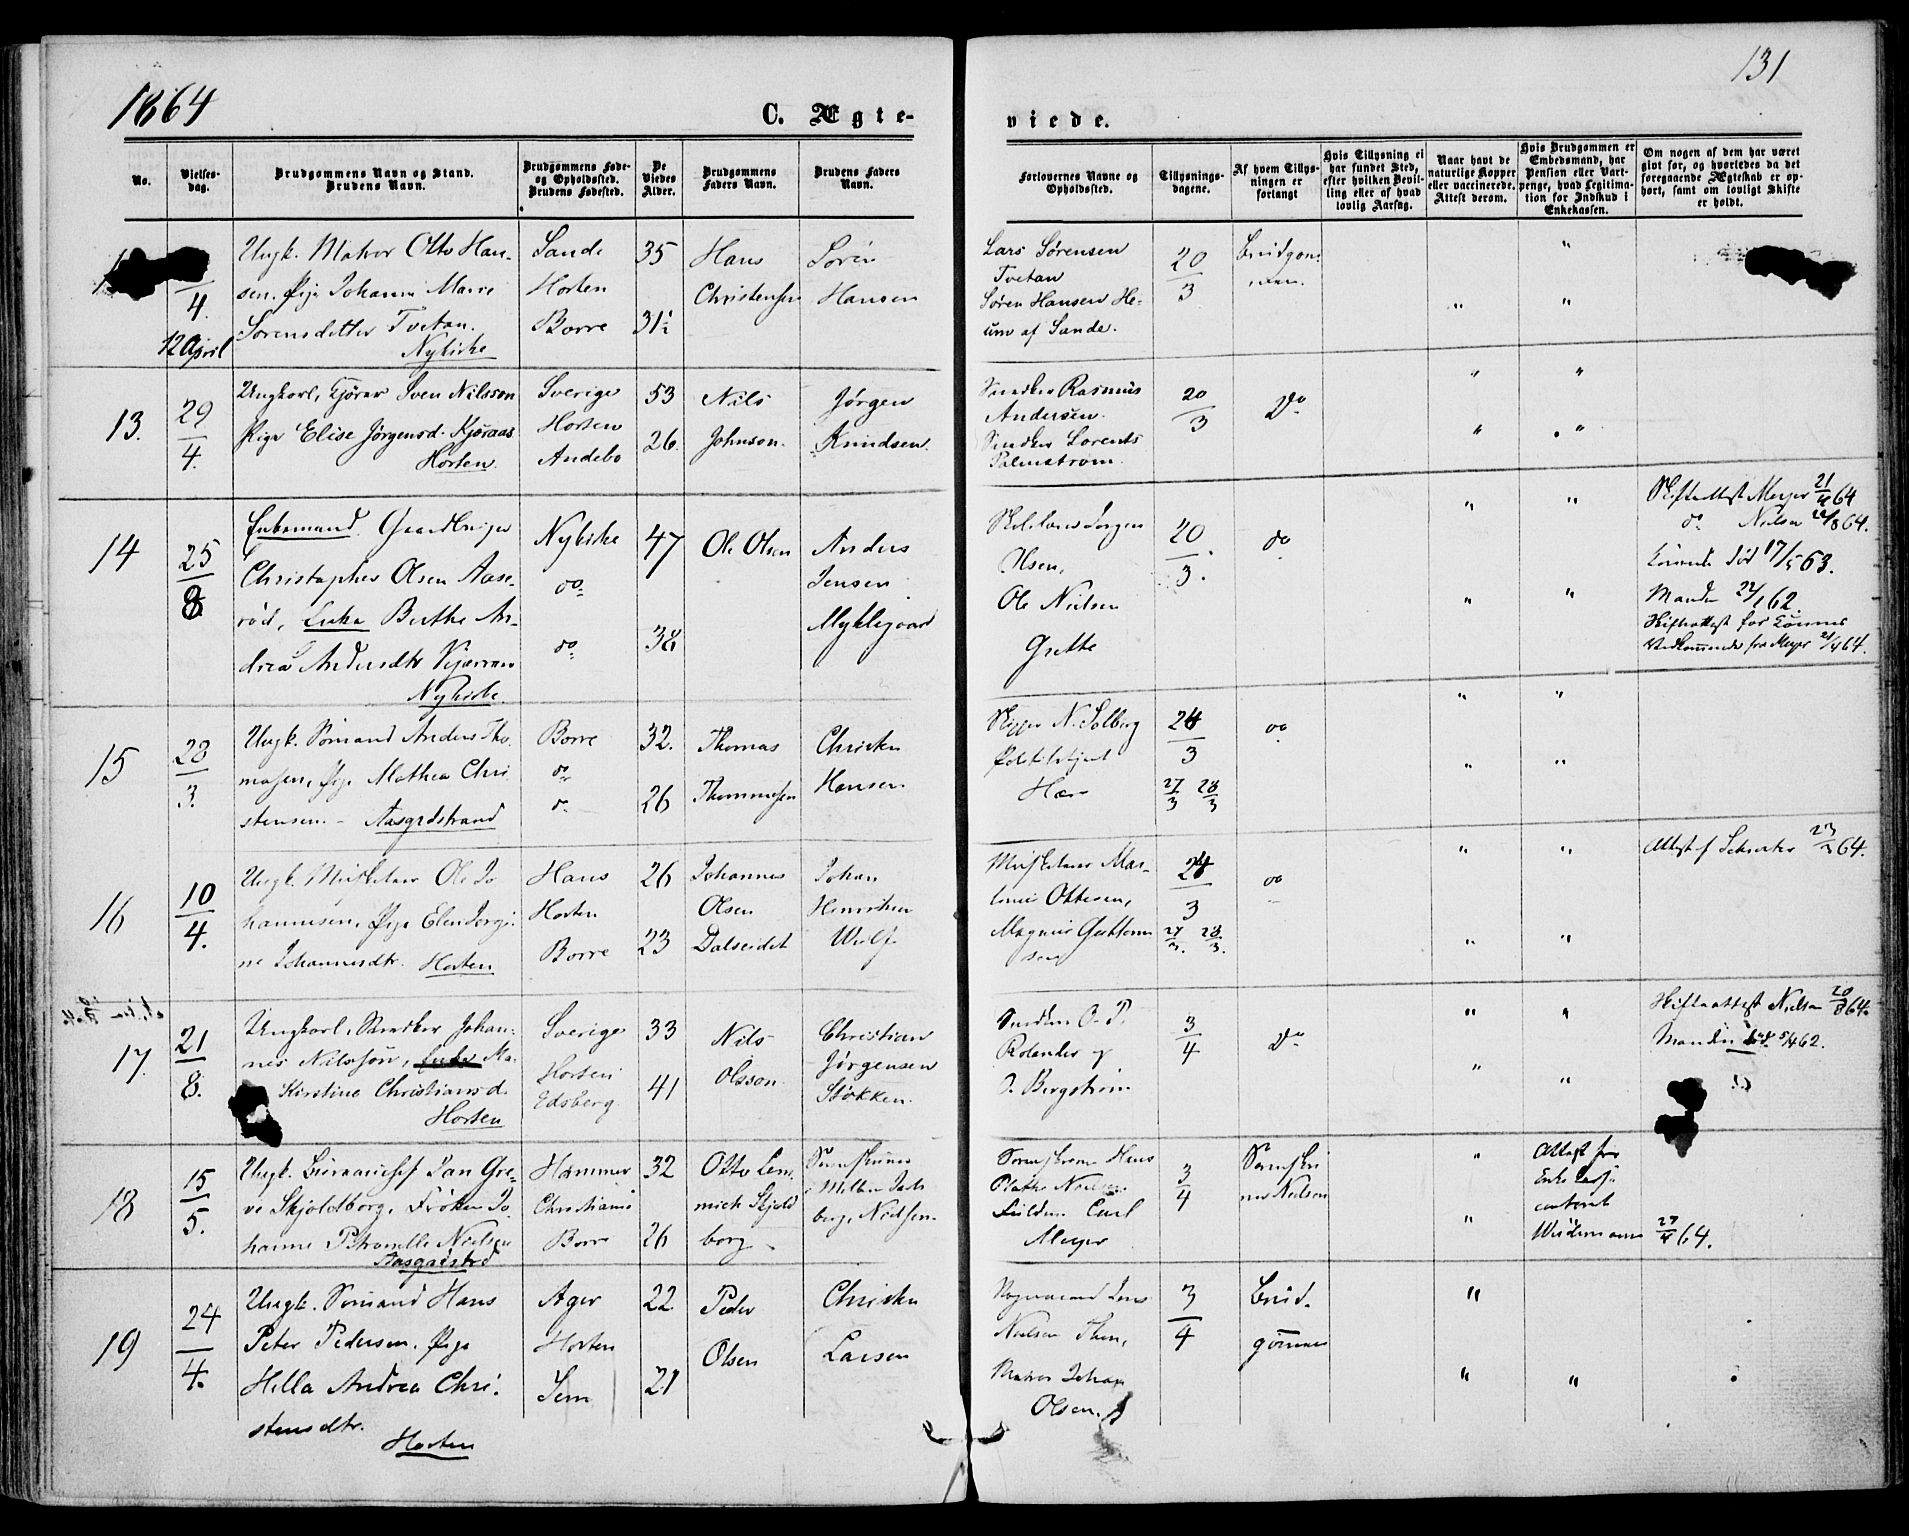 1864
131
C. Ægte-
viede.
No.
Vielses-
dag.
Brudgommens Navn og Stand.
Brudens Navn.
Brudgommens Føde-
og Opholdssted.
Brudens Fødested.
De
Viedes
Alder.
Brudgommens
Faders Navn.
Brudens Faders
Navn.
Forlovernes Navne og
Opholdssted.
Tillysnings-
dagene.
Af hvem Tillys-
ningen er
forlangt
Hvis Tillysning ei
har fundet Sted,
efter hvilken Bevil-
ling eller af hvad
lovlig Aarsag.
Naar havt de
naturlige Kopper
eller vaccinerede.
Attest derom.
Hvis Brudgommen er
Embedsmand, har
Pension eller Vart-
penge, hvad Legitima-
tion for Indskud i
Enkekassen.
Om nogen af dem har været
gift før, og hvorledes da det
foregaaende Ægteskab er op-
hørt, samt om lovligt Skifte
er holdt.
4.
12 April
Ungk. Matros Otto Han-
sen. Pige Johanne Marie
Sørensdatter Tvetan.
Nykirke
Sande
Horten
Borre
35
31½
Hans
Christensen
Søren
Hansen
Lars Sørensen
Tvetan
Søren Hansen He-
um af Sande.
20/3
Brudgom-
men.
" " "
13.
29/4.
Ungkarl, Gjører Sven Nilsson
Pige Elise Jørgensd. Kjøraas
Horten.
Sverige
Horten
Andebo
53
26.
Nils
Johnson.
Jørgen
Knudsen.
Snedker Rasmus
Andersen.
Snedker Lorents
Palmstrøm.
20/3
Do
" " " "
14
25/8
Enkemand Gaardbruger
Christopher Olsen Aase-
rød, Enke Berthe An-
drea Andersdtr Kjærran
Nykirke
Nykirke
do
do
47
38
Ole Olsen
Anders
Jensen
Myklegaard
Skolelærer Jørgen
Olsen,
Ole Nielsen
Grette
20/3.
do
" " " "
Skifteattest Meyer 21/4 64
do Nielsen 22/8 64.
Konen død 17/5 63.
Manden 22/1 62
Skifteattest for Konens
Vedkommende fra Meyer 21/4 64.
15
28/3.
Ungk. Sømand Anders Tho-
masen, Pige Mathea Chri
stensen. - Aasgrdstrand
Borre
do
do
32.
26
Thomas
Thommesen
Christen
Hansen
Skipper N. Solberg
Politibetjent
Hæs
24/3
27/3 28/3
do
" " " "
16
10/4.
Ungk. Ole Jo
hannesen, Pige Elen Jørgi-
ne Johannesdtr. Horten
Haus
Horten
Borre
26
23
Johannes
Olsen
Dalseidet
Johan
Henrichsen
Wulf
Mar-
Ottesen,
Magnus Guttorm
sen
24/3
27/3. 28/3.
do
" " " "
Attest f. 23/3 64.
17.
21/8.
Ungkarl, Snedker Johan-
nes Nilssøn, Enke Ma-
Kirstine Christiansd.
Horten
Sverige
Horten
Edsberg
33
41
Nils
Olsson.
Christian
Jørgensen
Støkken.
Snedker O. P.
Rolander og
J. Bergstrøm
3/4
Do
" " " "
Skifteattest Nielsen 20/8 64.
Manden død 5/4 62.
18
15/5.
Ungk. Jan Gre-
ve Skjoldborg, Frøken Jo-
hanne Petronelle Nielsen
Aasgaastrd
Hammer
Christiania
Borre
32
26
Otto Lem
mich Skjold
borg
Sorenskriver
berg, Nielsen.
Sorenskriver Hans
Plathe Nielsen
Carl
Meyer
3/4
Sorenskri
ver Nielsen
" "
Attest fra
Enke Cassen
Weidemann 27/4 64.
19
24/4.
Ungk. Sømand Hans
Peter Pedersen. Pige
Hella Andrea Chri-
stensdtr.
Horten
Ager
Horten
Sem
22
21
Peder
Olsen
Christen
Larsen
Vognmand Jens
Nielsen Thon,
Matros Johan
Olsen.
3/4
Brud-
gommen
" " "